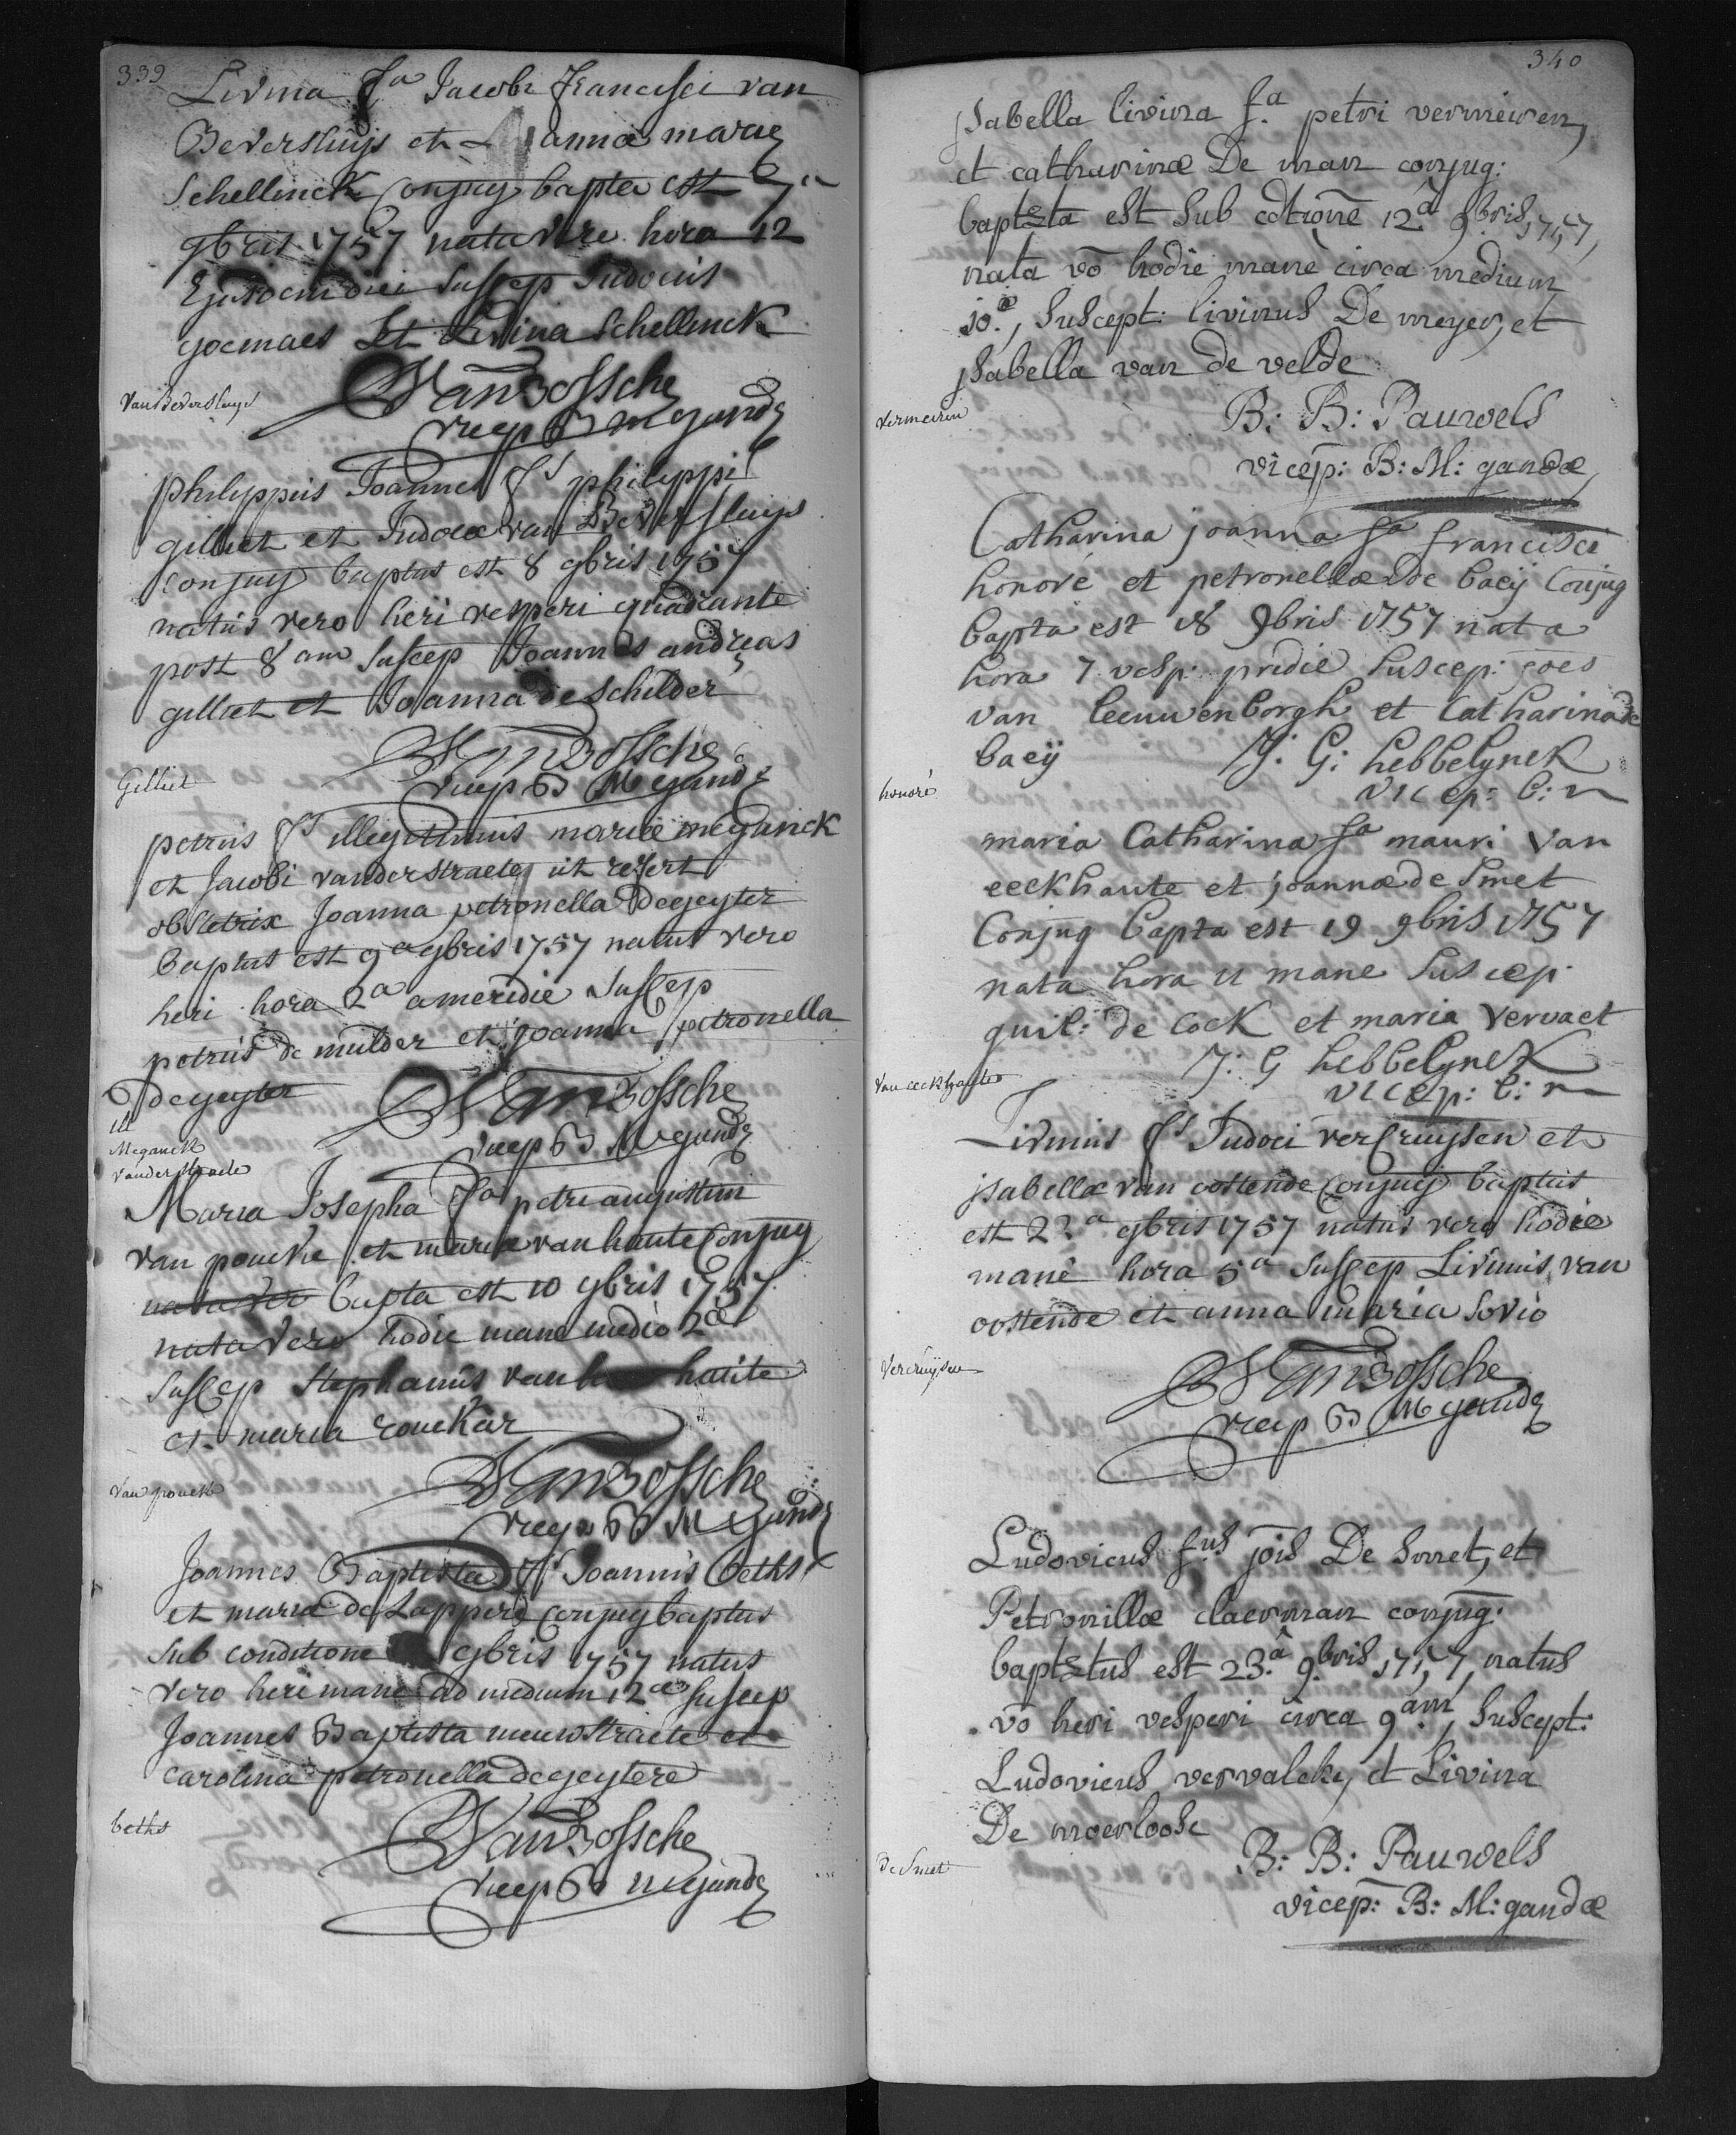 339
Livina fa Jacobi Francisci van
Beversluijs et annæ mariæ
Schellinck Conjug bapta est
9bris 1757 nata vero hora 12
Ejusdem diei Suscep Judocus
goemaes Et Livina Schellinck
VanBossche
vicep B M gandæ
Van Beversluys
philippus Joannes fs philippi
gilliet et Judocæ van Beversluijs
conjug baptus est 8 9bris 1757
natus vero heri vesperi quadrante
post 8am Suscep Joannes andreas
gilliet et Joanna de schilder
VanBossche
vicep B M gandæ
Gilliet
petrus fs illegitimus mariæ meganck
et Jacobi vanderstraete ut refert
obstetrix Joanna petronella degeyter
baptus est 9a 9bris 1757 natus vero
heri hora 2a a meridie Suscep
petrus de mulder et joanna petronella
degeyter
VanBossche
vicep B M gandæ
ill
Meganck
vanderstraete
Maria Josepha fa petri augustini
van poucke et mariæ van haute Conjug
bapta est 10 9bris 1757
nata vero hodie mane medio 2æ
Suscep Stephanus van haute
et maria
VanBossche
vicep B M gandæ
van poucke
Joannes Baptista fs Joannis beths
et mariæ de Lappere Conjug baptus
sub conditione 9bris 1757 natus
vero heri mane ad medium 12æ Suscep
Joannes Baptista nieuwstraete et
Carolina petronella degeytere
VanBossche
vicep B M gandæ
beths
340
jsabella livina f.a petri vermeiren,
et catharinæ De man conjug:
baptzta est sub cdtione 12.a 9.bris 1757,
nata vo hodie manè circa medium
10.æ, suscept: livinus De meyer, et
jsabella van de velde
B: B: Pauwels
vicep: B: M: gandæ
vermeiren
Catharina joanna fa francisci
honoré et petronellæ de baeÿ Conjug
bapta est 18 9bris 1757 nata
hora 7 vesp: pridie suscep: joes
van leeuwenborgh et Catharina de
baeÿ
J: G: hebbelynck
vicep: b: m
honoré
maria Catharina fa mauri van
eeckhaute et joannæ de Smet
Conjug bapta est 19 9bris 1757
nata hora 11 mane suscep:
guil: de Cock et maria vervaet
J: G hebbelynck
vicep: b: m
van eeckhaute
Livinus fs Judoci vercruysen et
jsabellæ van oostende Conjug baptus
est 22a 9bris 1757 natus vero hodie
manè hora 5a Suscep Livinus van
oostende et anna maria Sovio
VanBossche
vicep B M gandæ
Vercruijsen
Ludovicus f.us jois De smet, et
Petronillæ claerman conjug:
baptztus est 23.a 9.bris 1757, natus
vo heri vesperi circa 9.am, Suscept:
Ludovicus vervalcke, et Livina
De moerloose
B: B: Pauwels
vicep: B: M: gandæ
de Smet